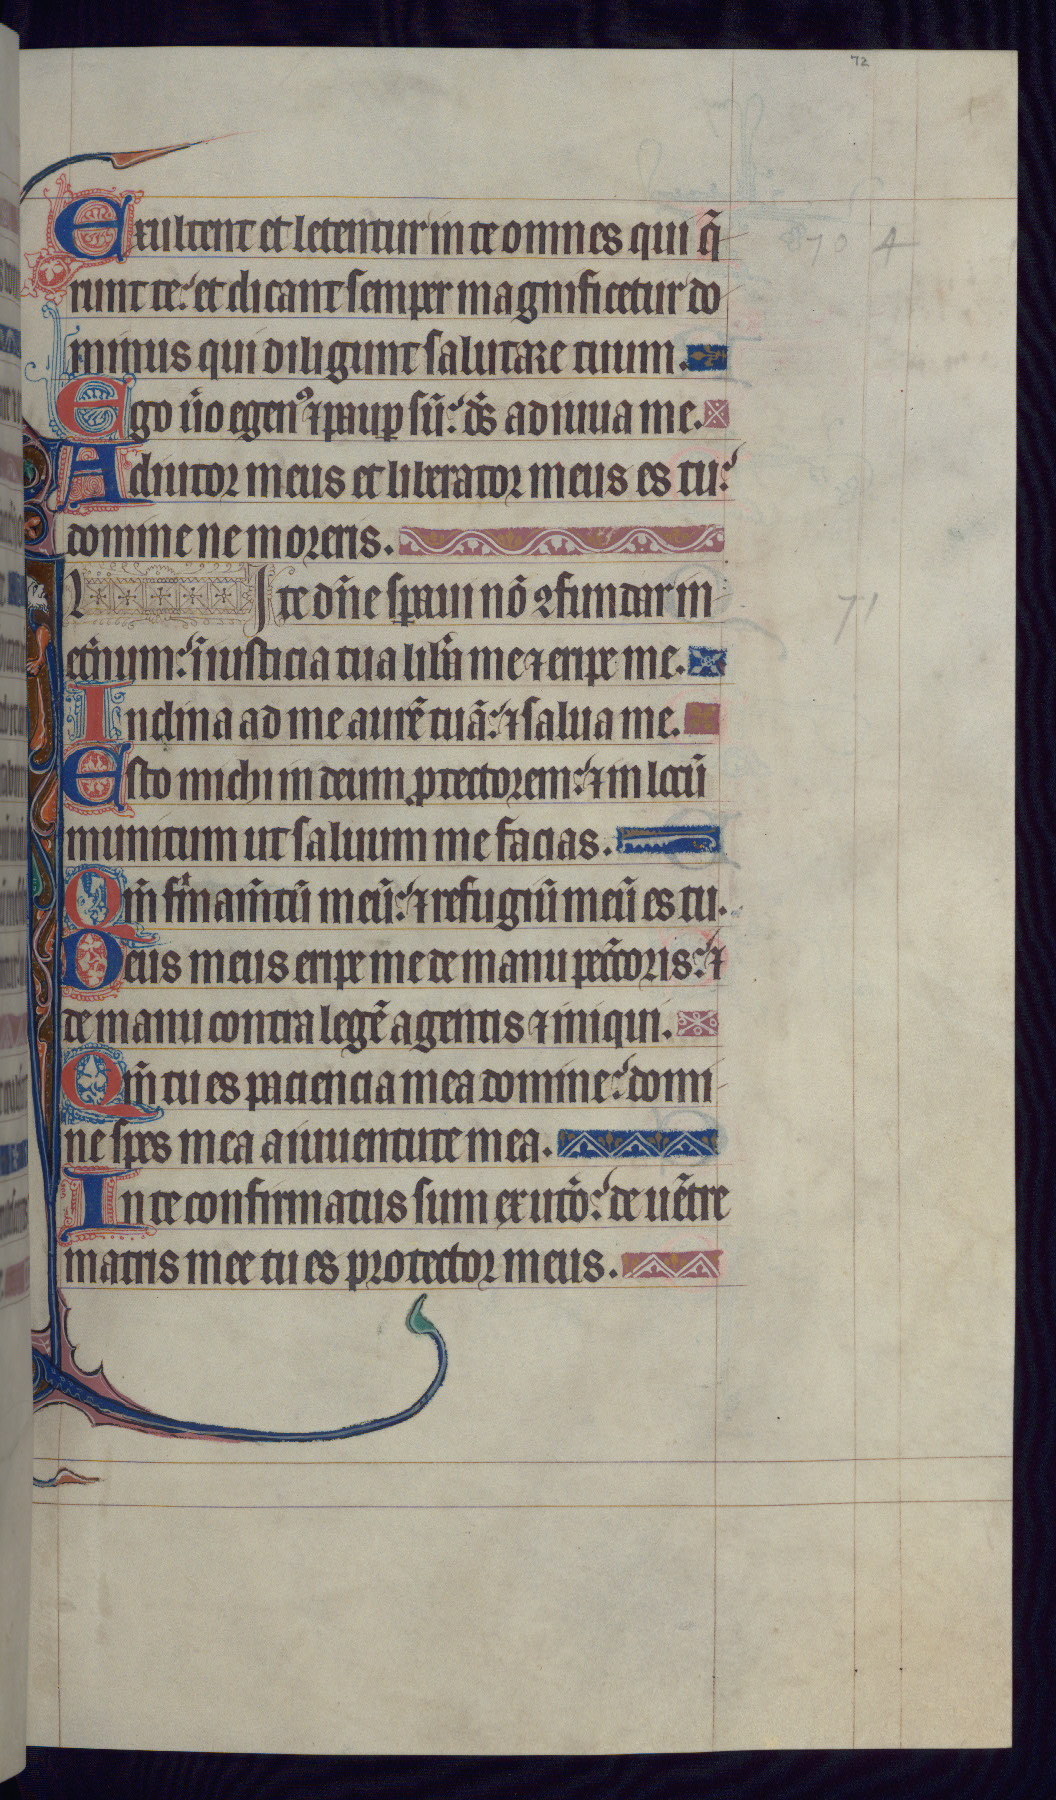 72
Exultent et letentur in te omnes qui q̄
runt te: et dicant semper magnificetur do
minus qui diligunt salutare tuum.
Ego ūo egen⁹ ⁊ paup sū: ds̄ adiuua me.
Adiutor meus et liberator meus es tu:
domine ne moreris.
In te dn̄e speraui nō ꝯfundar in
etn̄um: in iusticia tua libā me ⁊ eripe me.
Inclina ad me aurē tuā: ⁊ salua me.
Esto michi in deum ꝓtectorem: ⁊ in locū
munitum ut saluum me facias.
Qm̄ firmam̄tū meū: ⁊ refugiū meū es tu.
Deus meus eripe me de manu pecc̄toris: ⁊
de manu contra legē agentis ⁊ iniqui.
Qm̄ tu es paciencia mea domine: domi
ne spes mea a iuuentute mea.
In te confirmatus sum ex utō: de uētre
matris mee tu es protector meus.
70 A
71